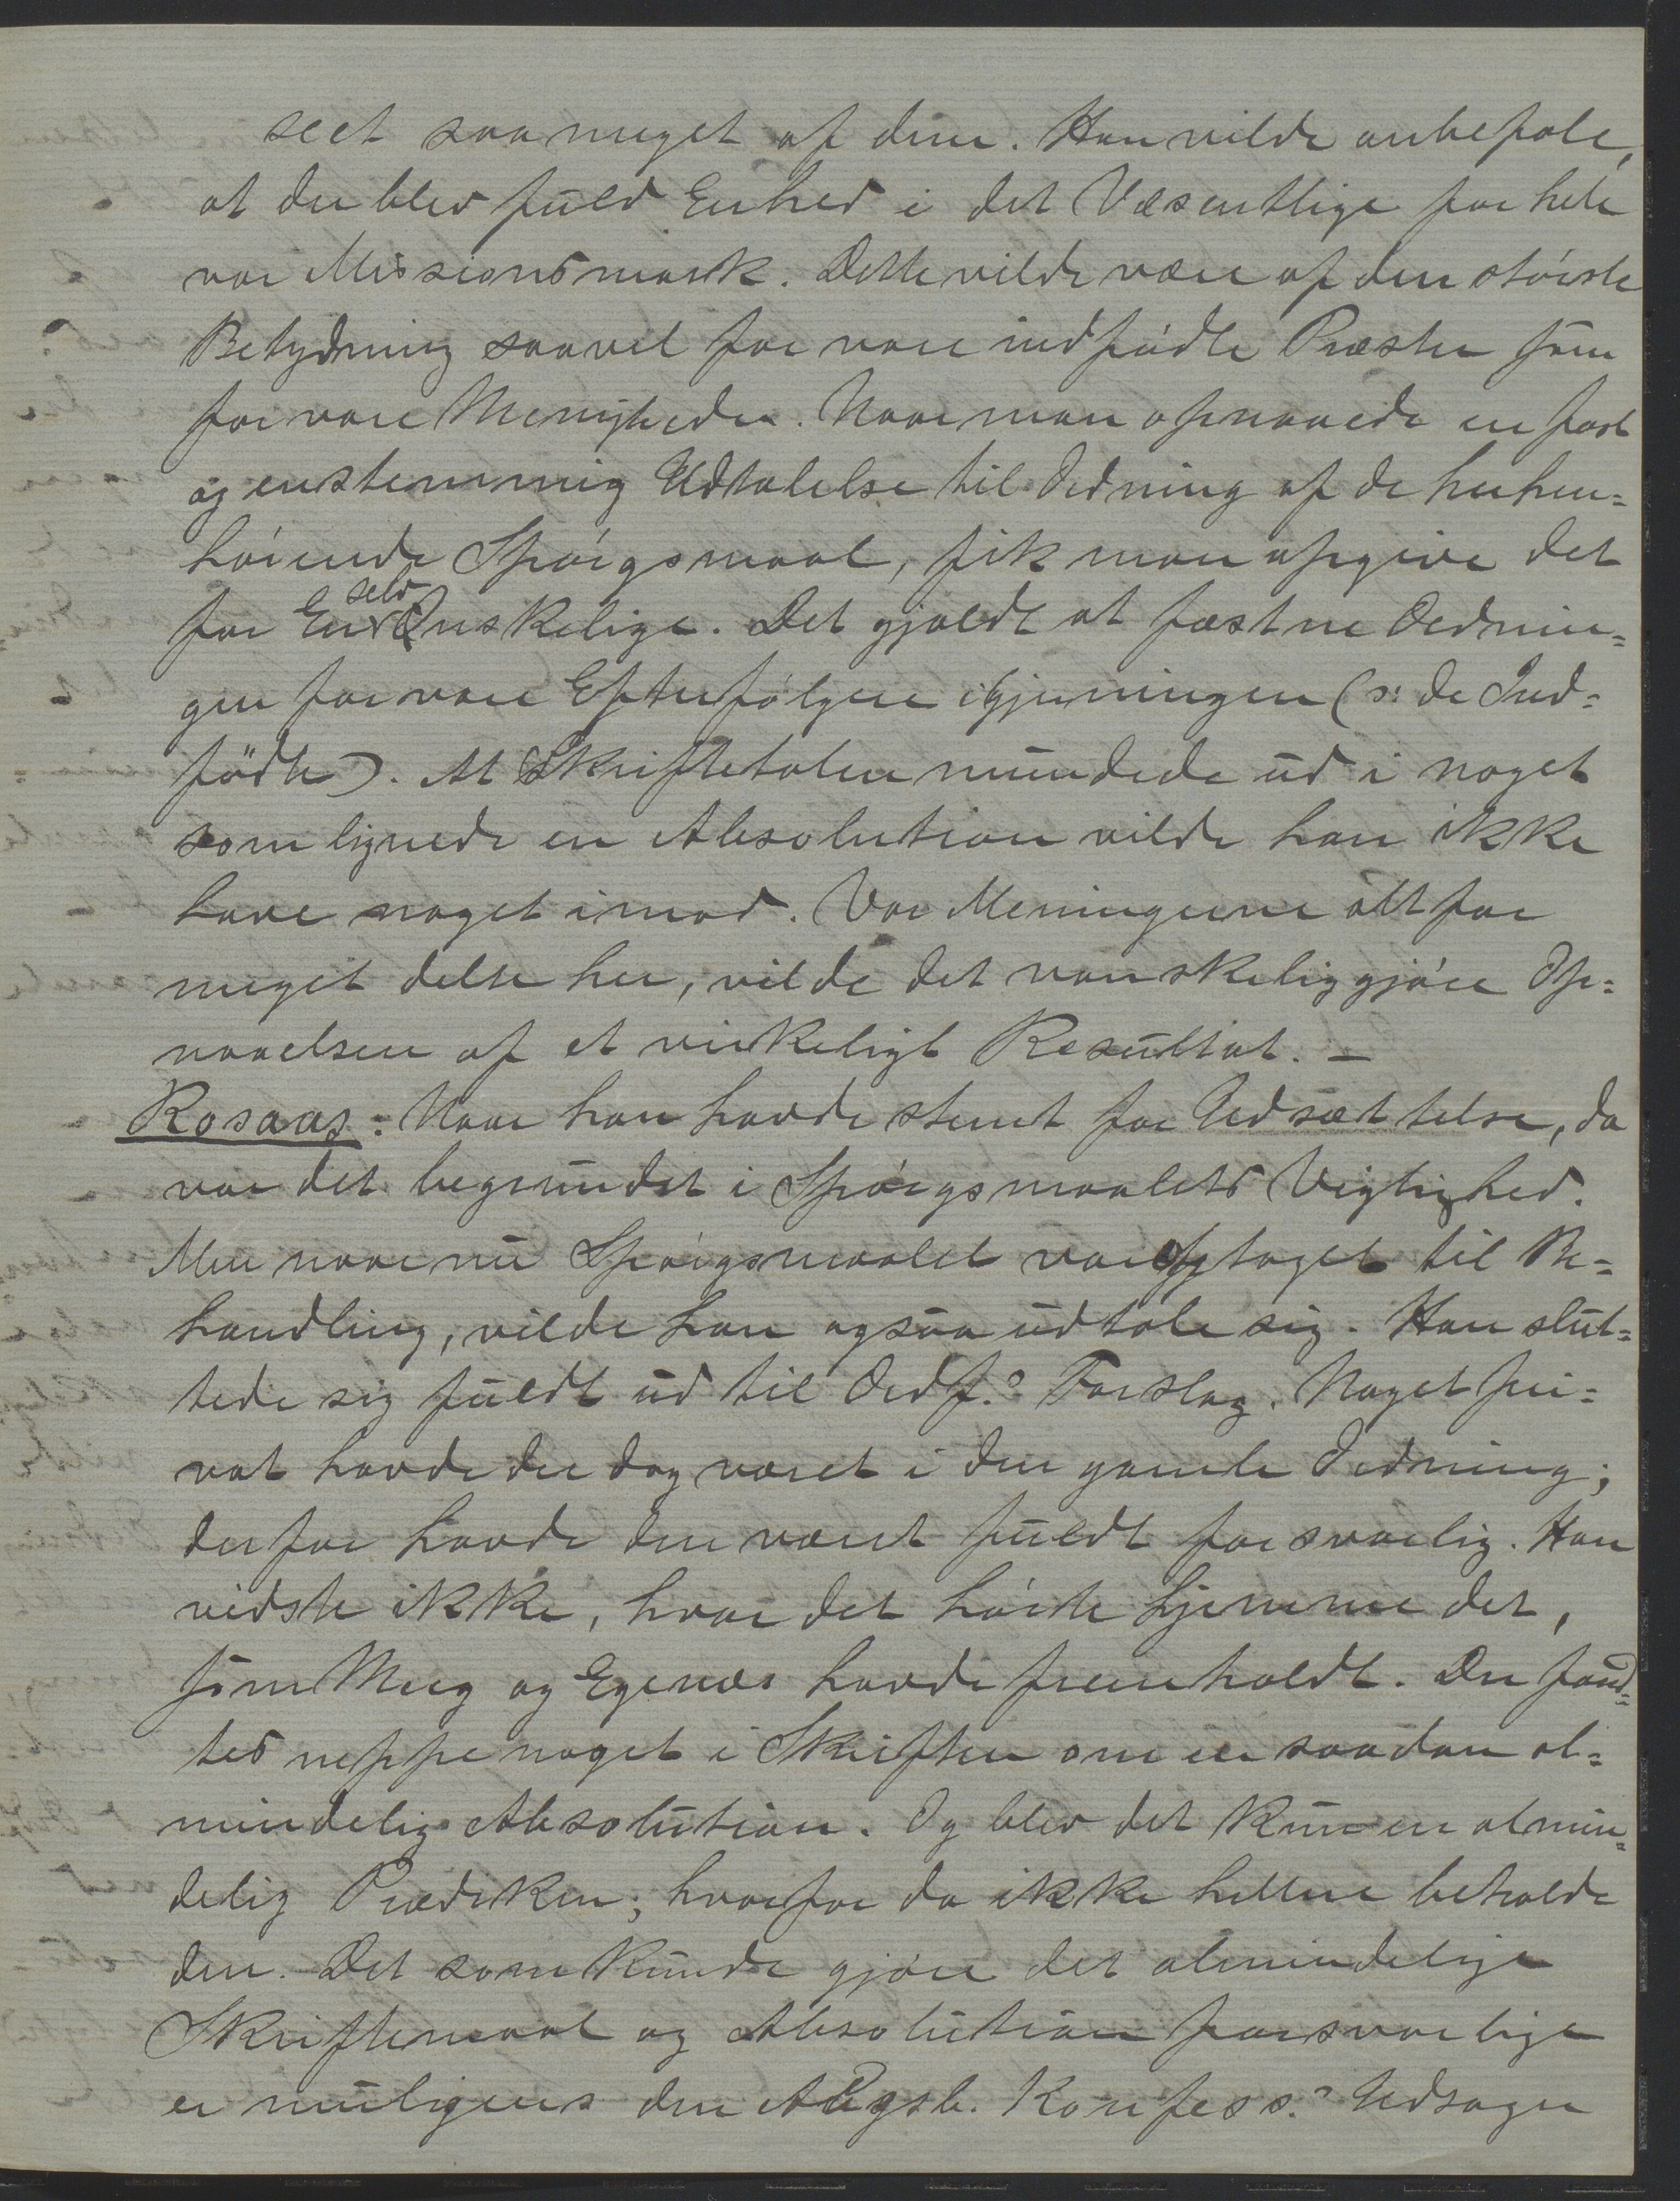 seet saa meget af dem. Han vilde anbefale,
at der blev fuld Enhed i det Væsentlige for hele
vor Missionsmark. Dette vilde være af den største
Betydning saavel for vore indfødte Præster som
for vore Menigheder. Naar man opnaaede en fast
og enstemmig Udtalelse til Ordning af de herhen-
hørende Spørgsmaal, fik man opgive det
for En selv Ønskelige. Det gjaldt at fæstne Ordnin-
gen for vore Efterfølgere i Gjerningen (ɔ: de Ind-
fødte). At Skriftetalen mundede ud i noget
som lignede en Absolution vilde han ikke
have noget imod. Var Meningerne alt for
meget delte her, vilde det vanskeliggjøre Op-
naaelsen af et virkeligt Resultat. –
Rosaas: Naar han havde stemt for Udsættelse, da
var det begrundet i Spørgsmaalets Vigtighed.
Men naar nu Spørgsmaalet var optaget til Be-
handling, vilde han ogsaa udtale sig. Han slut-
tede sig fuldt ud til Ordf.s Forslag. Noget pri-
vat havde der dog været i den gamle Ordning;
derfor havde den været fuldt forsvarlig. Han
vidste ikke, hvor det hørte hjemme det,
som Meeg og Egenæs havde fremholdt. Der fand-
tes neppe noget i Skriften om en saadan al-
mindelig Absolution. Og blev det kun en almin-
delig Prædiken; hvorfor da ikke hellere beholde
den. Det som kunde gjøre det almindelige
Skriftemaal og Absolution forsvarlige
er muligens den Augsb. Konfess.s Udsagn